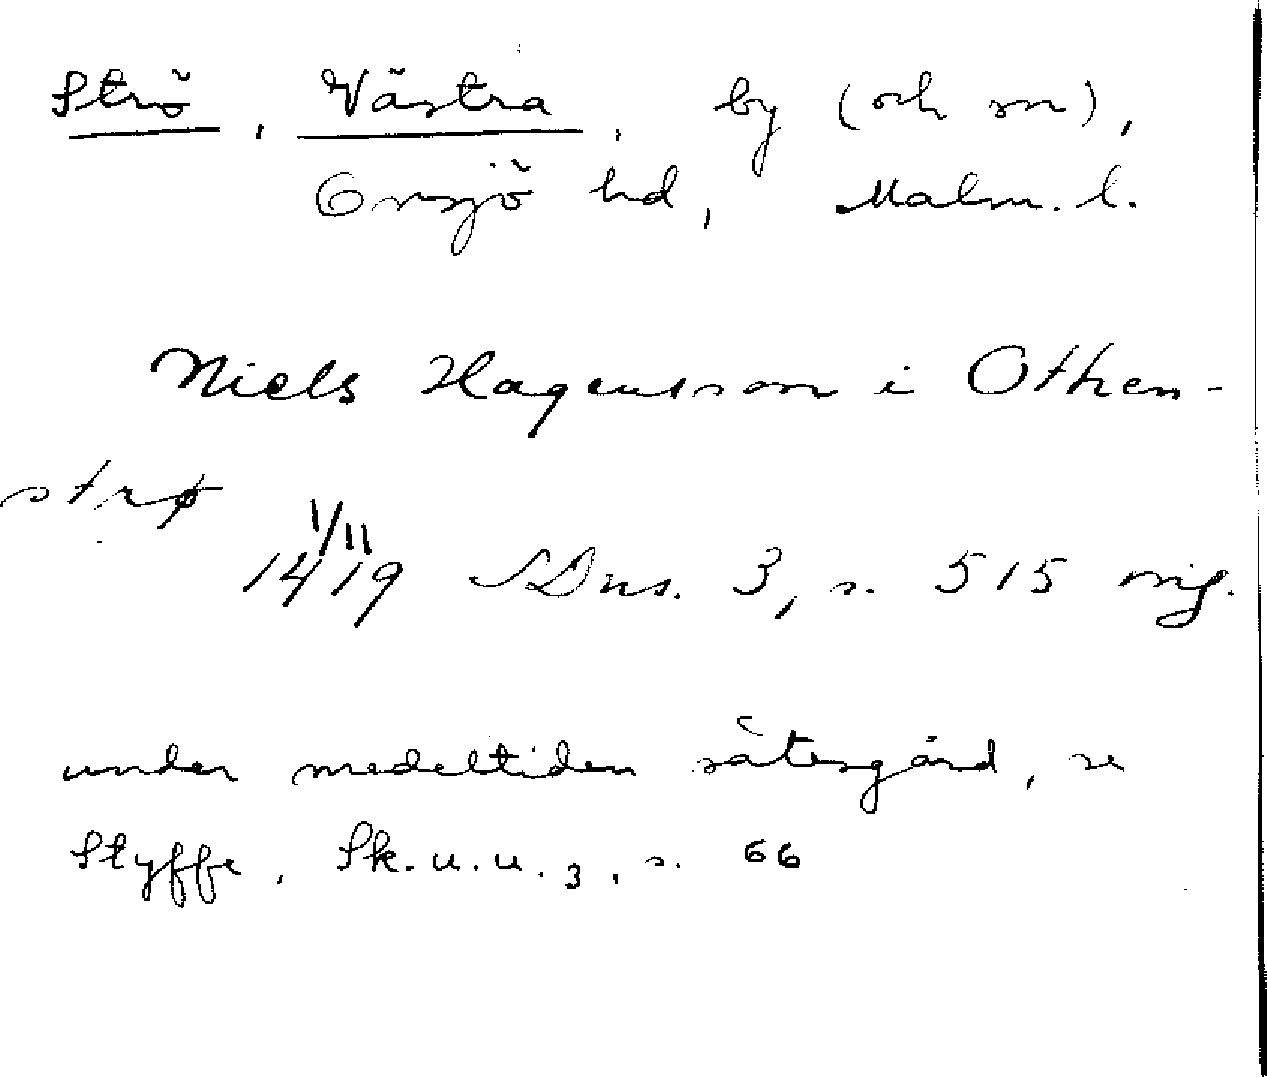 Strö, Västra, by (och sn),
Onsjö hd, Malm. l.
Niels Hagensson i Othen-
strø
1/11
1419 SDns. 3, s. 515 orig.
under medeltiden sätesgård, se
Styffe, Sk. u. u. 3, s. 66